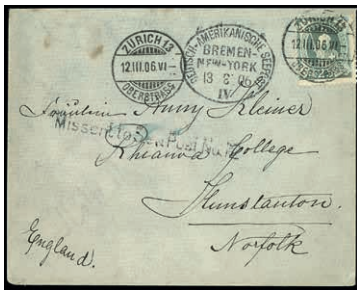 ZÜRICH 13
12.III.06.VI-
OBERSTRASS
DEUTSCH-AMERIKANISCHE SEEPOST
BREMEN-
NEW-YORK
13 3 06
IV
ZÜRICH 13
12.III.06.VI-
OBERSTRASS
Fräulein Anny Kleiner
Missent to Sea Post No.
College
Hunstanton.
Norfolk
England.